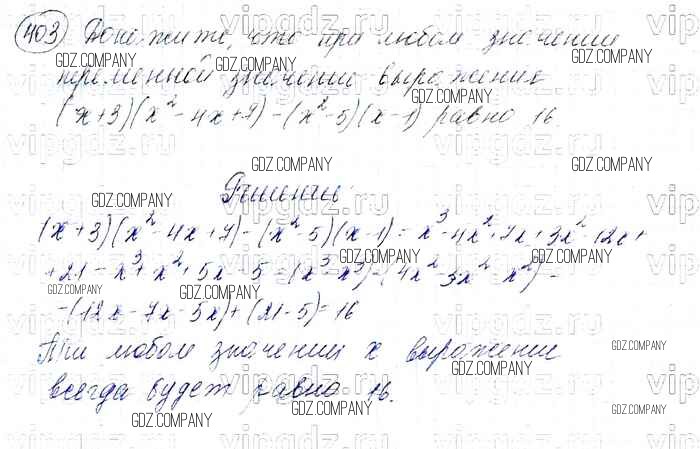 403 Докажите, что при любом значении
переменной значение выражения
(x+3)(x²-4x+7)-(x²-5)(x-1) равно 16
Решение:
(x+3)(x²-4x+7)-(x²-5)(x-1)=x³-4x²+7x+3x²-12x+
+21-x³+x²+5x-5=(x³-x³)-(4x²-3x²-x²)-
-(12x-7x-5x)+(21-5)=16
При любом значении x выражение
всегда будет равно 16.